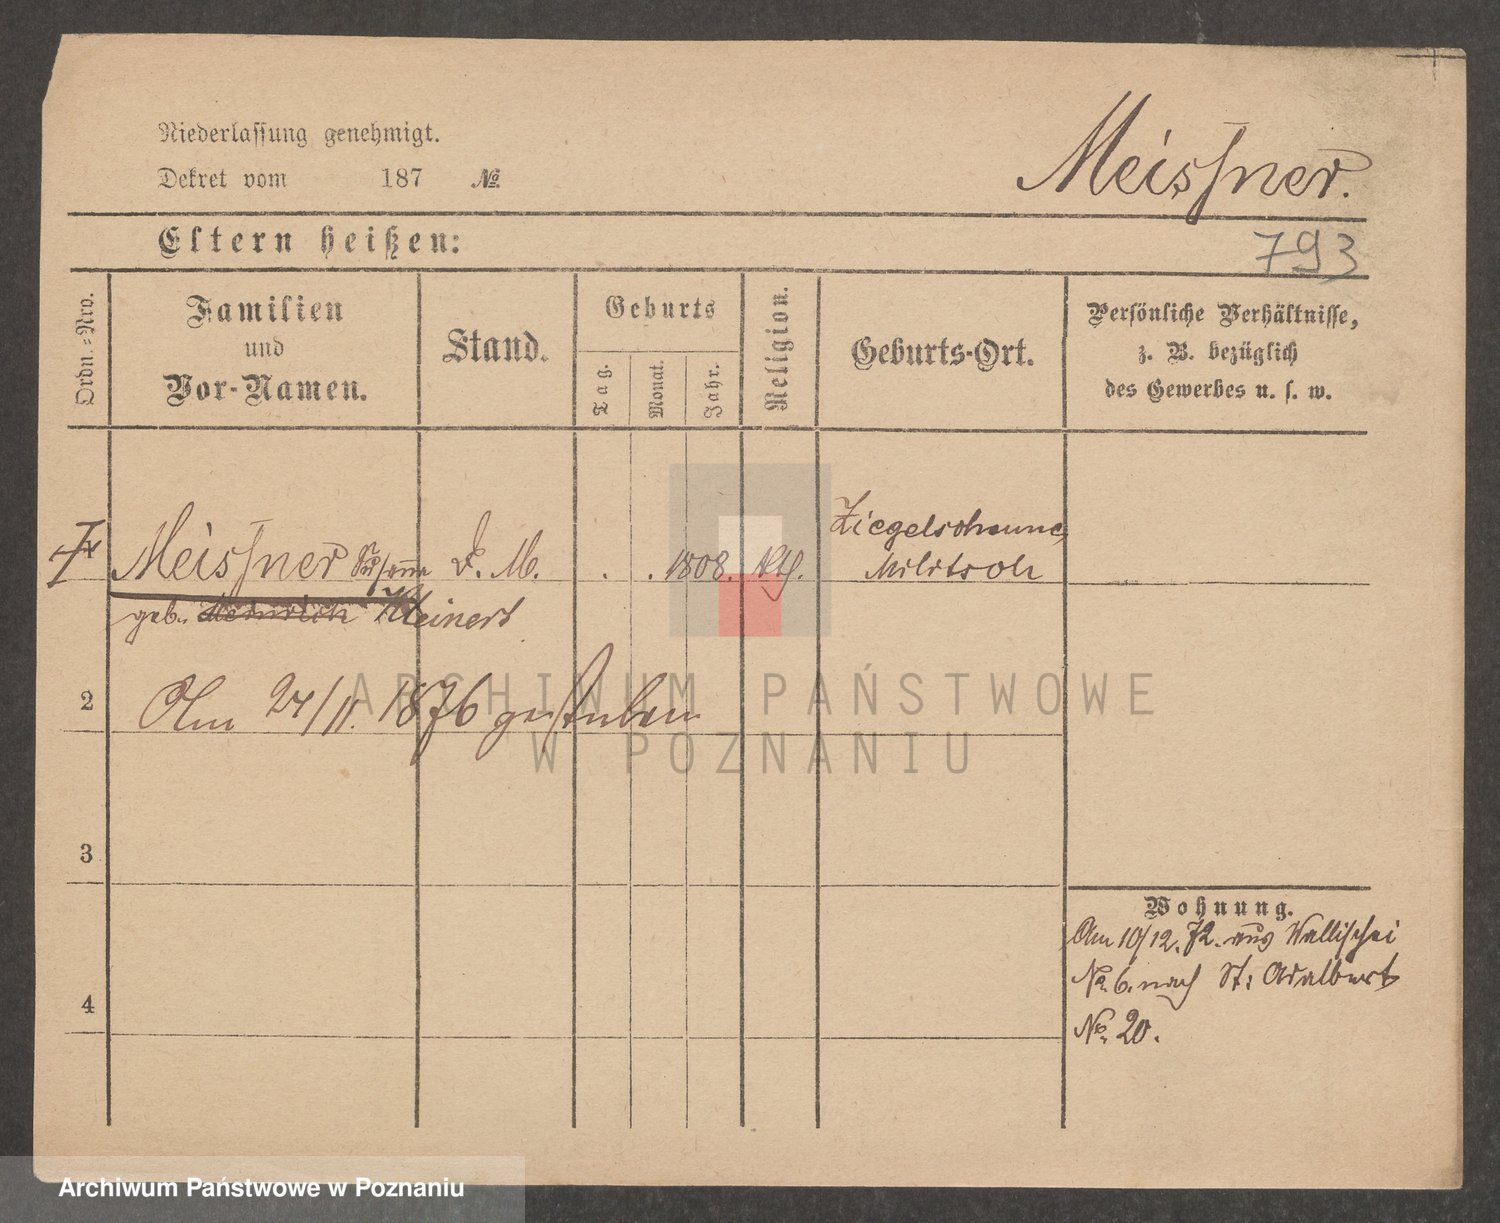 Niederlassung genehmigt.
Dekret vom 187 №
Meissner.
Eltern heißen:
793
Ordn.-Nro.
Familien
und
Vor-Namen.
Stand.
Geburts
Tag.
Monat.
Jahr.
Religion.
Geburts-Ort.
Persönliche Verhältnisse,
z. B. bezüglich
des Gewerbes u. s. w.
Meissner Susanna
geb. Heinrich Kleinert
1808.
Kth.
Ziegelscheune
Militsch
2 Am 24/11. 1876 gestorben
3
4
Wohnung.
Am 10/12. 72. aus Wallischei
No. 6. nach St: Adalbert
No. 20.
ARCHIWUM PAŃSTWOWE
W POZNANIU
Archiwum Państwowe w Poznaniu